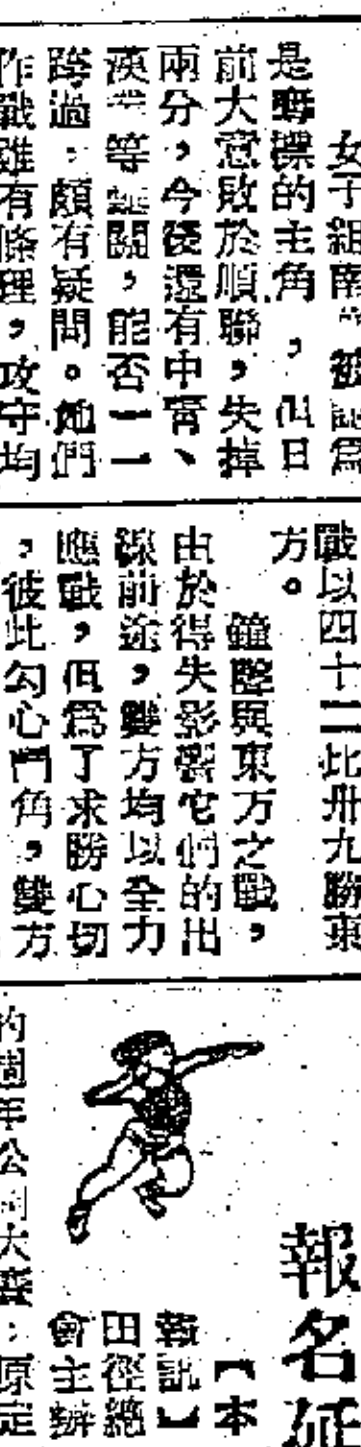 女子組南　被認為
是奪標的主角，但日
前大意敗於順聯，失掉
兩分，今後還有中青、
漢　等　關，能否一一
跨過，頗有疑問。她們
作戰雖有條理，攻守均
戰以四十二比卅九勝東
方。
鐘聲與東方之戰，
由於得失影響它們的出
線前途，雙方均以全力
應戰，但為了求勝心切
，彼此勾心鬥角，雙方
報名延
【本
報訊】
田徑總
會主辦
的週年公開大賽，原定